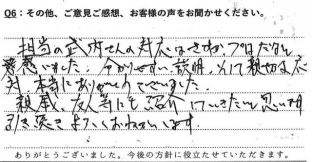 Q6：その他、ご意見ご感想、お客様の声をお聞かせください。
担当の武内さんの対応はさすが、プロだなと
感じました。分かりやすい説明、そして親切な応
対、本当にありがとうございました。
親戚、友人等にも紹介していきたいと思います
引き続きよろしくおねがいします
ありがとうございました。今後の方針に役立たせていただきます。